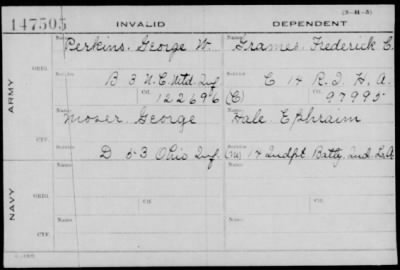 (3-M-3)
147505 INVALID DEPENDENT
Name, Perkins, George W. Name, Grames, Frederick C.
ARMY
ORIG. Service B 3 N.C. Mtd. Inf Service C 14 R.I. H.A.
Ctf. 122696 (C) Ctf. 97995
Name, Moser, George Name, Hale, Ephraim
CTF. Service D 53 Ohio Inf. Service (M) 14 Indpt Batty Ind. L.A.
NAVY
ORIG. Name, Ctf. Name, Ctf.
Service Service
CTF. Name, Name,
Service Service